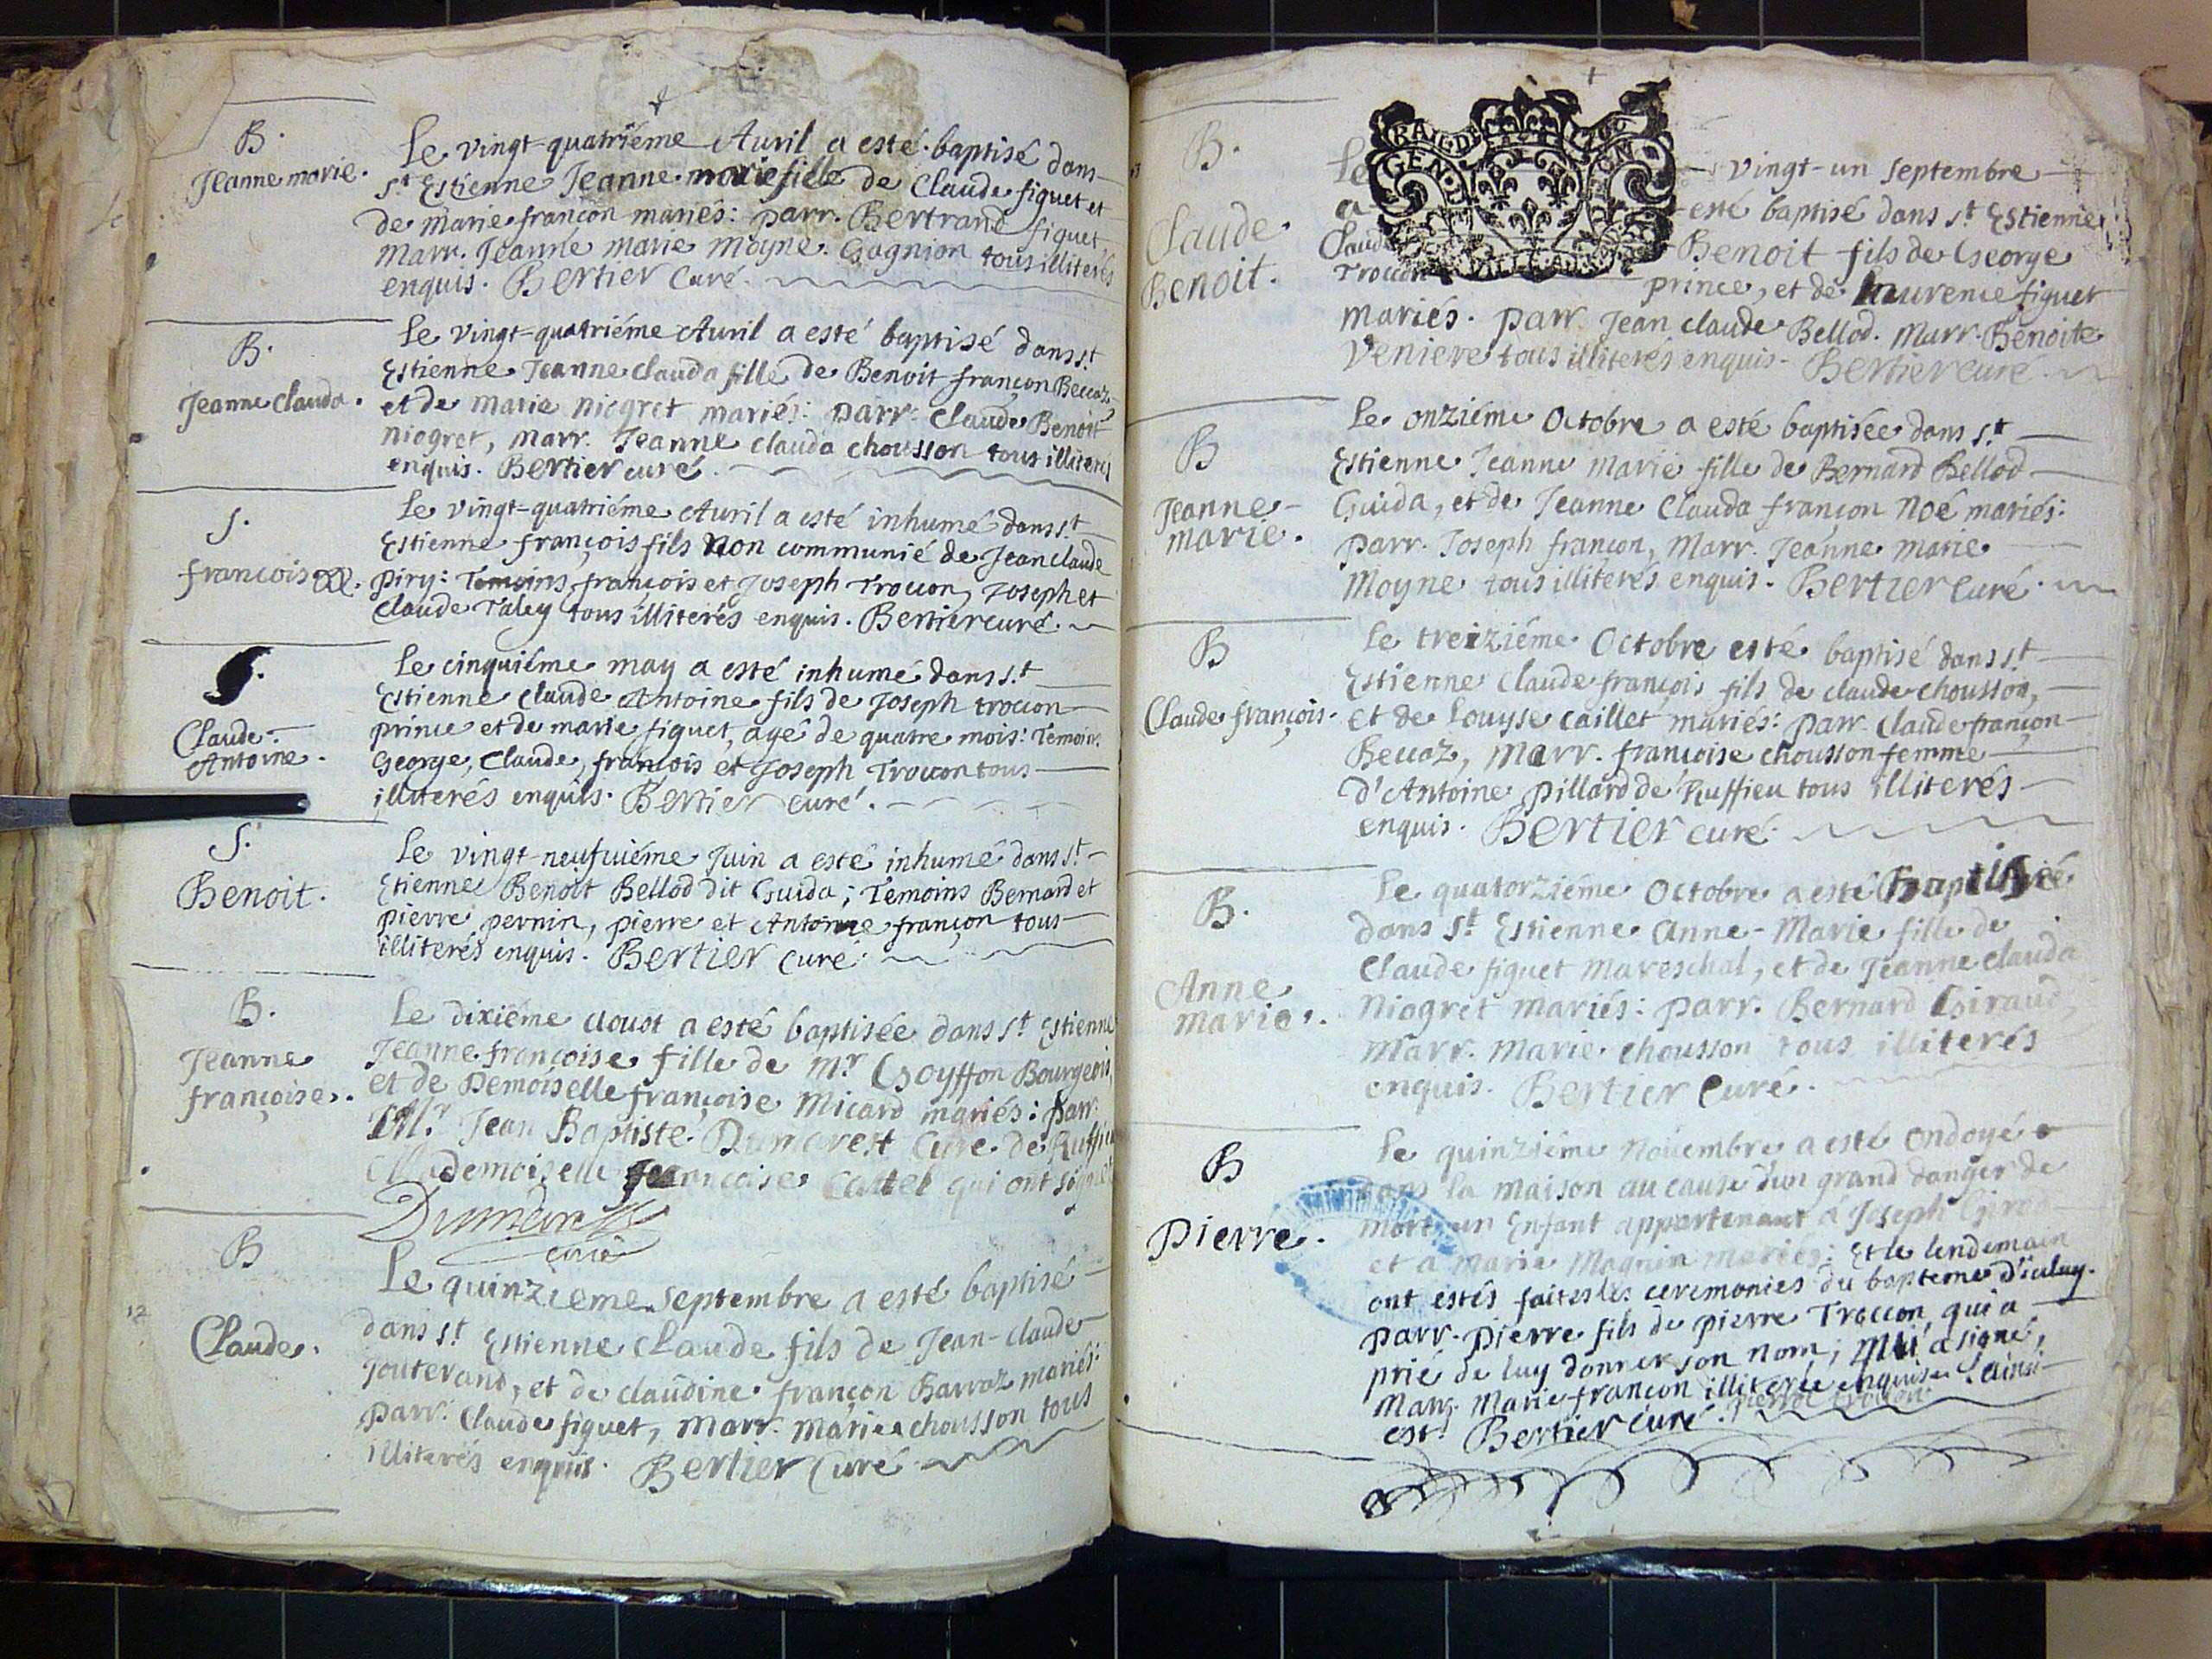 B.
Jeanne marie.
Le vingt-quatriéme Auril a esté baptisé dans
St Estienne Jeanne marie fille de Claude figuet et
de Marie françon mariés: parr. Bertrand figuet,
Marr. Jeanne marie Moyne. Gagnion tous illiterés
enquis. Bertier Curé.
B.
Jeanne Clauda.
Le vingt-quatriéme Auril a esté baptisé dans st
Estienne Jeanne clauda fille de Benoit françon Beccaz
et de marie niogret mariés: parr. Claude Benoit
niogret, marr. Jeanne clauda chousson tous illiterés
enquis. Bertier curé.
S.
françois
Le vingt-quatriéme Auril a esté inhumé dans st
Estienne françois fils non communié de Jean claude
piry: Temoins, françois et Joseph Troccon, Joseph et
Claude Taley tous illiterés enquis. Bertier curé.
S.
Claude-
Antoine.
Le cinquiéme may a esté inhumé dans s.t
Estienne Claude Antoine fils de Joseph troccon
prince et de marie figuet, agé de quatre mois: Temoins
George, Claude, françois et Joseph Troccon tous
illiterés enquis. Bertier curé.
S.
Benoit.
Le vingt-neufuiéme Juin a esté inhumé dans st
Etienne Benoit Bellod dit Guida; Temoins Bernard et
pierre pernin, pierre et Antoine françon tous
illiterés enquis. Bertier Curé.
B.
Jeanne
françoise.
Le dixiéme Aoust a esté baptisée dans st Estienne
Jeanne françoise fille de mr Goyffon Bourgeois,
et de Demoiselle françoise Micard mariés: parr.
Mr. Jean Baptiste Dumarest Curé de Ruffieu
Mademoiselle françoise Castel qui ont signé
Dumarest
curé
B
12
Claude.
Le quinzieme Septembre a esté baptisé
dans st Estienne Claude fils de Jean-claude
Jouterand, et de claudine françon Barraz mariés:
parr. Claude figuet, Marr. Marie chousson tous
illiterés enquis. Bertier Curé
B.
Claude
Benoit.
GEN. DE BOURGOGN
Le vingt-un septembre
a esté baptisé dans st Estienne
Claude Benoit fils de George
Troccon prince, et de Laurence figuet
mariés. parr. Jean claude Bellod. Marr. Benoite
Veniere tous illiterés enquis. Bertier curé.
B
Jeanne-
marie.
Le onziéme Octobre a esté baptisée dans s.t
Estienne Jeanne Marie fille de Bernard Bellod
Guida, et de Jeanne Clauda françon Noé mariés:
parr. Joseph françon, Marr. Jeanne Marie
Moyne tous illiterés enquis. Bertier Curé.
B
Claude françois.
Le treiziéme Octobre esté baptisé dans s.t
Estienne Claude françois fils de claude chousson,
et de Louyse Caillet mariés: parr. Claude françon
Beccaz, Marr. françoise chousson femme
d'Antoine pillard de Ruffieu tous illiterés
enquis. Bertier curé.
B.
Anne
marie.
Le quatorziéme Octobre a esté Baptisée
dans s.t Estienne Anne-Marie fille de
Claude figuet Mareschal, et de Jeanne clauda
Niogret mariés: parr. Bernard Giraud,
Marr. Marie chousson tous illiterés
enquis. Bertier Curé.
B
Pierre.
Le quinziéme Nouembre a esté ondoyé
dans la maison au cause d'un grand danger de
mort, un Enfant appartenant á Joseph
et a Marie Magnin mariés: Et le lendemain
ont estés faites les ceremonies du bapteme d'iceluy.
parr. pierre fils de pierre Troccon, qui a
prié de luy donner son nom; a signé,
Marr. Marie françon illiterée enquise. L'ainsi
est. Bertier Curé. pierre trocon